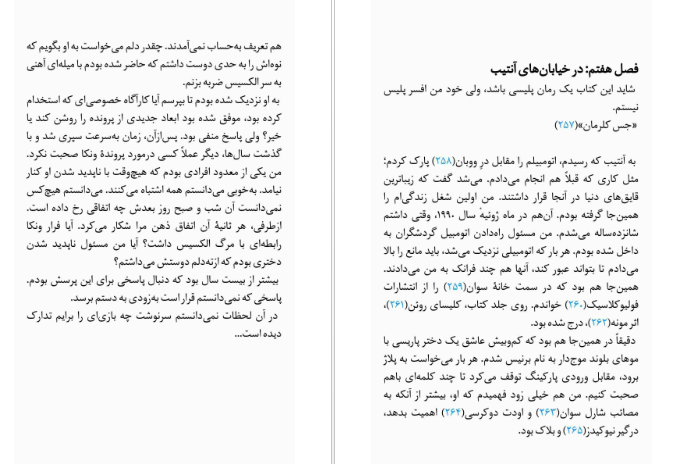 فصل هفتم: در خیابان‌های آنتیب
شاید این کتاب یک رمان پلیسی باشد، ولی خود من افسر پلیس
نیستم.
«جس کلرمان»(۲۵۷)
به آنتیب که رسیدم، اتومبیلم را مقابل درِ ووبان(۲۵۸) پارک کردم؛
مثل کاری که قبلاً هم انجام می‌دادم. می‌شد گفت که زیباترین
قایق‌های دنیا در آنجا قرار داشتند. من اولین شغل زندگی‌ام را
همین‌جا گرفته بودم. آن‌هم در ماه ژوئیهٔ سال ۱۹۹۰، وقتی داشتم
شانزده‌ساله می‌شدم. من مسئول راه‌دادن اتومبیل گردشگران به
داخل شده بودم. هر بار که اتومبیلی نزدیک می‌شد، باید مانع را بالا
می‌دادم تا بتواند عبور کند، آنها هم چند فرانک به من می‌دادند.
همین‌جا هم بود که در سمت خانهٔ سوان(۲۵۹) را از انتشارات
فولیوکلاسیک(۲۶۰) خواندم. روی جلد کتاب، کلیسای روئن(۲۶۱)،
اثر مونه(۲۶۲)، درج شده بود.
دقیقاً در همین‌جا هم بود که کم‌وبیش عاشق یک دختر پاریسی با
موهای بلوند موج‌دار به نام برنیس شدم. هر بار می‌خواست به پلاژ
برود، مقابل ورودی پارکینگ توقف می‌کرد تا چند کلمه‌ای باهم
صحبت کنیم. من هم خیلی زود فهمیدم که او، بیشتر از آنکه به
مصائب شارل سوان(۲۶۳) و اودت دوکرسی(۲۶۴) اهمیت بدهد،
درگیر نیوکیدز(۲۶۵) و بلاک بود.
هم تعریف به‌حساب نمی‌آمدند. چقدر دلم می‌خواست به او بگویم که
نوه‌اش را به حدی دوست داشتم که حاضر شده بودم با میله‌ای آهنی
به سر الکسیس ضربه بزنم.
به او نزدیک شده بودم تا بپرسم آیا کارآگاه خصوصی‌ای که استخدام
کرده بود، موفق شده بود ابعاد جدیدی از پرونده را روشن کند یا
خیر؟ ولی پاسخ منفی بود. پس‌ازآن، زمان به‌سرعت سپری شد و با
گذشت سال‌ها، دیگر عملاً کسی درمورد پروندهٔ ونکا صحبت نکرد.
من یکی از معدود افرادی بودم که هیچ‌وقت با ناپدید شدن او کنار
نیامد. به‌خوبی می‌دانستم همه اشتباه می‌کنند. می‌دانستم هیچ‌کس
نمی‌دانست آن شب و صبح روز بعدش چه اتفاقی رخ داده است.
ازطرفی، هر ثانیهٔ آن اتفاق ذهن مرا شکار می‌کرد. آیا فرار ونکا
رابطه‌ای با مرگ الکسیس داشت؟ آیا من مسئول ناپدید شدن
دختری بودم که ازته‌دلم دوستش می‌داشتم؟
بیشتر از بیست سال بود که دنبال پاسخی برای این پرسش بودم.
پاسخی که نمی‌دانستم قرار است به‌زودی به دستم برسد.
در آن لحظات نمی‌دانستم سرنوشت چه بازی‌ای را برایم تدارک
دیده است...